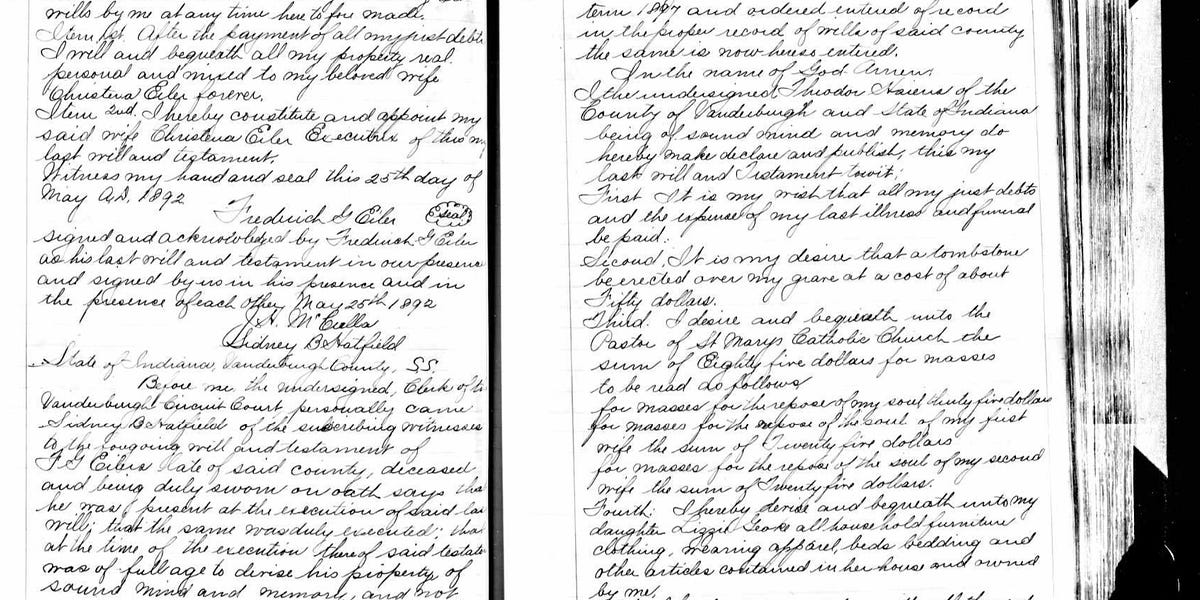 wills by me at any time here to fore made.
Item 1st. After the payment of all my just debts
I will and begueath all my property real
personal and mixed to my beloved wife
Christena Eiler forever.
Item 2nd. I hereby constitute and appoint my
said wife Christena Eiler Executrix of this my
last will and testament.
Witness my hand and seal this 25th day of
May A.D. 1892
Fredrich G Eiler (Seal)
signed and acknowledged by Fredrich G Eiler
as his last will and testament in our presence
and signed by us in his presence and in
the presence of each other, May 25th 1892
J.H. McCulla
Sidney B Hatfield
State of Indiana, Vanderburgh County, SS.
Before me, the undersigned, Clerk of the
Vanderburgh Circuit Court personally came
Sidney B Hatfield of the subscribing witnesses
to the foregoing will and testament of
F G Eiler late of said county, deceased
and being duly sworn on oath says that
he was present at the execution of said last
will; that the same was duly executed; that
at the time of the execution thereof said testator
was of full age to devise his property of
sound mind and memory, and not
term 1897 and ordered entered of record
in the proper record of wills of said county
the same is now hereso entered.
In the name of God Amen,
I the undersigned Theodor of the
County of Vanderburgh and State of Indiana
being of sound mind and memory do
hereby make declare and publish, this my
last will and Testament towit;
First It is my wish that all my just debts
and the expense of my last illness and funeral
be paid.
Second, It is my desire that a tombstone
be erected over my grave at a cost of about
Fifty dollars.
Third. I desire and bequeath unto the
Pastor of St Marys Catholic Church the
sum of Eighty five dollars for masses
to be read as follows
for masses for the repose of my soul, thirty five dollars
for masses for the repose of the soul of my first
wife the sum of Twenty five dollars
for masses for the repose of the soul of my second
wife the sum of Twenty five dollars.
Fourth: I hereby devise and bequeath unto my
daughter Lizzie all household furniture
clothing, wearing apparel, beds bedding and
other articles contained in her house and owned
by me.